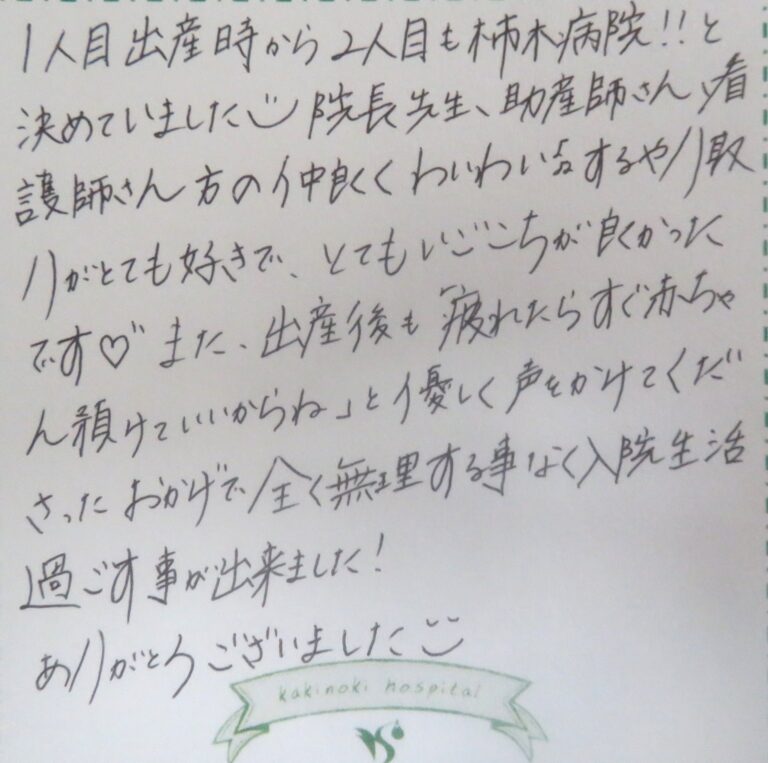 1人目出産時から2人目も柿木病院!!と
決めていました 院長先生、助産師さん、看
護師さん方の仲良くわいわい話するやり取
りがとても好きで、とてもいごこちが良かった
です♡ また、出産後も「疲れたらすぐ赤ちゃ
ん預けていいからね」と優しく声をかけてくだ
さったおかげで全く無理する事なく入院生活
過ごす事が出来ました!
ありがとうございました
kakinoki hospital